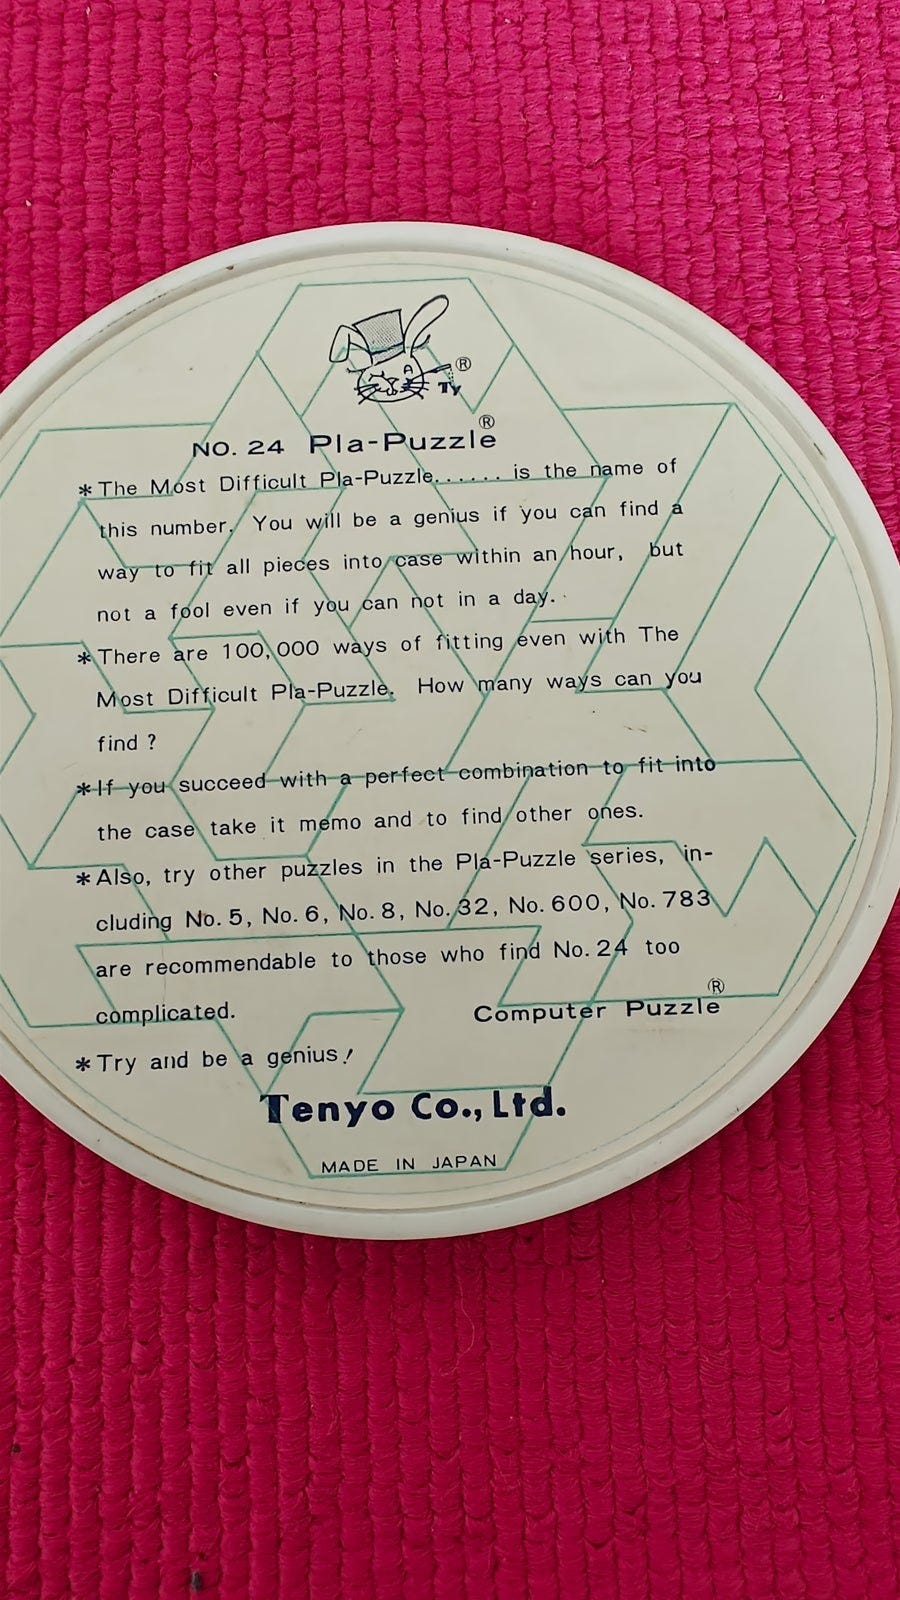 ®
Ty
®
NO. 24 Pla-Puzzle
* The Most Difficult Pla-Puzzle...... is the name of
this number. You will be a genius if you can find a
way to fit all pieces into case within an hour, but
not a fool even if you can not in a day.
* There are 100,000 ways of fitting even with The
Most Difficult Pla-Puzzle. How many ways can you
find ?
* If you succeed with a perfect combination to fit into
the case take it memo and to find other ones.
* Also, try other puzzles in the Pla-Puzzle series, in-
cluding No. 5, No. 6, No. 8, No. 32, No. 600, No. 783
are recommendable to those who find No. 24 too
complicated. Computer Puzzle®
* Try and be a genius!
Tenyo Co., Ltd.
MADE IN JAPAN